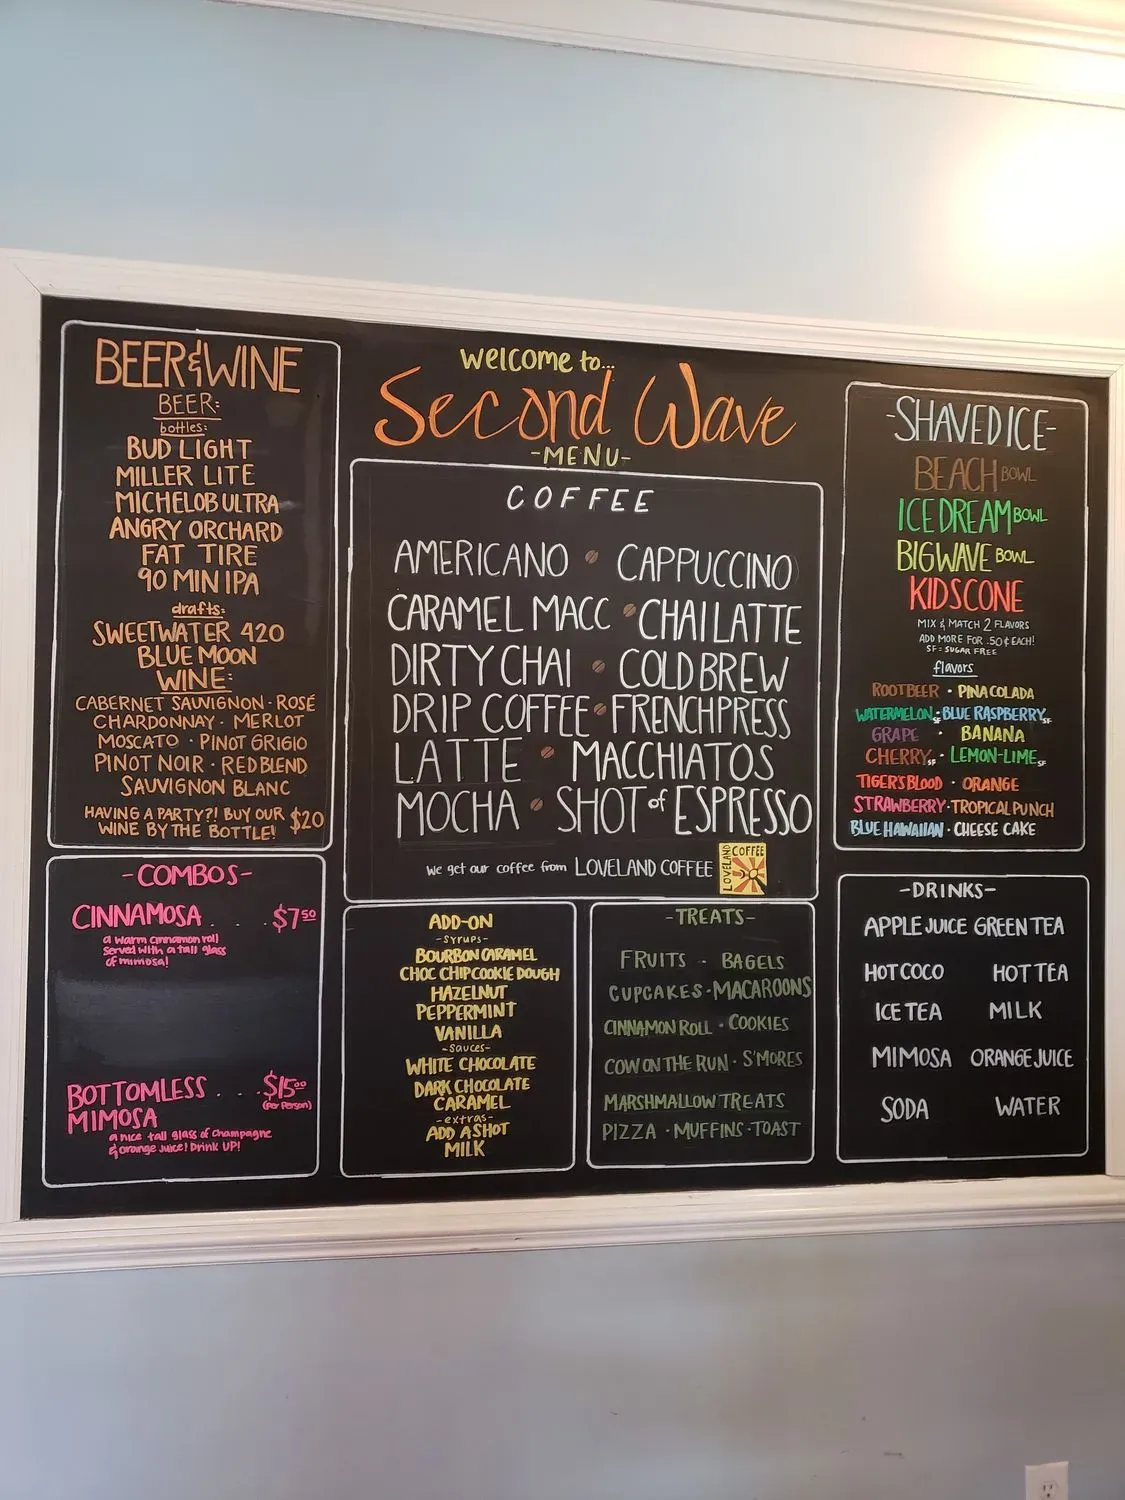 welcome to...
Second Wave
-MENU-
BEER & WINE
BEER:
bottles:
BUD LIGHT
MILLER LITE
MICHELOB ULTRA
ANGRY ORCHARD
FAT TIRE
90 MIN IPA
drafts:
SWEETWATER 420
BLUE MOON
WINE:
CABERNET SAUVIGNON · ROSÉ
CHARDONNAY · MERLOT
MOSCATO · PINOT GRIGIO
PINOT NOIR · RED BLEND
SAUVIGNON BLANC
HAVING A PARTY?! BUY OUR
WINE BY THE BOTTLE! $20
-COMBOS-
CINNAMOSA . . . $7.50
a warm cinnamon roll
served with a tall glass
of mimosa!
BOTTOMLESS . . . $15.00
MIMOSA (per person)
a nice tall glass of champagne
& orange juice! Drink UP!
COFFEE
AMERICANO CAPPUCCINO
CARAMEL MACC CHAI LATTE
DIRTY CHAI COLD BREW
DRIP COFFEE FRENCH PRESS
LATTE MACCHIATOS
MOCHA SHOT of ESPRESSO
We get our coffee from LOVELAND COFFEE
LOVELAND COFFEE
ADD-ON
-syrups-
BOURBON CARAMEL
CHOC CHIP COOKIE DOUGH
HAZELNUT
PEPPERMINT
VANILLA
-sauces-
WHITE CHOCOLATE
DARK CHOCOLATE
CARAMEL
-extras-
ADD A SHOT
MILK
-TREATS-
FRUITS · BAGELS
CUPCAKES · MACAROONS
CINNAMON ROLL · COOKIES
COW ON THE RUN · S'MORES
MARSHMALLOW TREATS
PIZZA · MUFFINS · TOAST
-SHAVED ICE-
BEACH BOWL
ICE DREAM BOWL
BIG WAVE BOWL
KIDS CONE
MIX & MATCH 2 FLAVORS
ADD MORE FOR .50¢ EACH!
SF = SUGAR FREE
flavors
ROOTBEER · PINA COLADA
WATERMELON SF · BLUE RASPBERRY SF
GRAPE · BANANA
CHERRY SF · LEMON-LIME SF
TIGER'S BLOOD · ORANGE
STRAWBERRY · TROPICAL PUNCH
BLUE HAWAIIAN · CHEESE CAKE
-DRINKS-
APPLE JUICE GREEN TEA
HOT COCO HOT TEA
ICE TEA MILK
MIMOSA ORANGE JUICE
SODA WATER